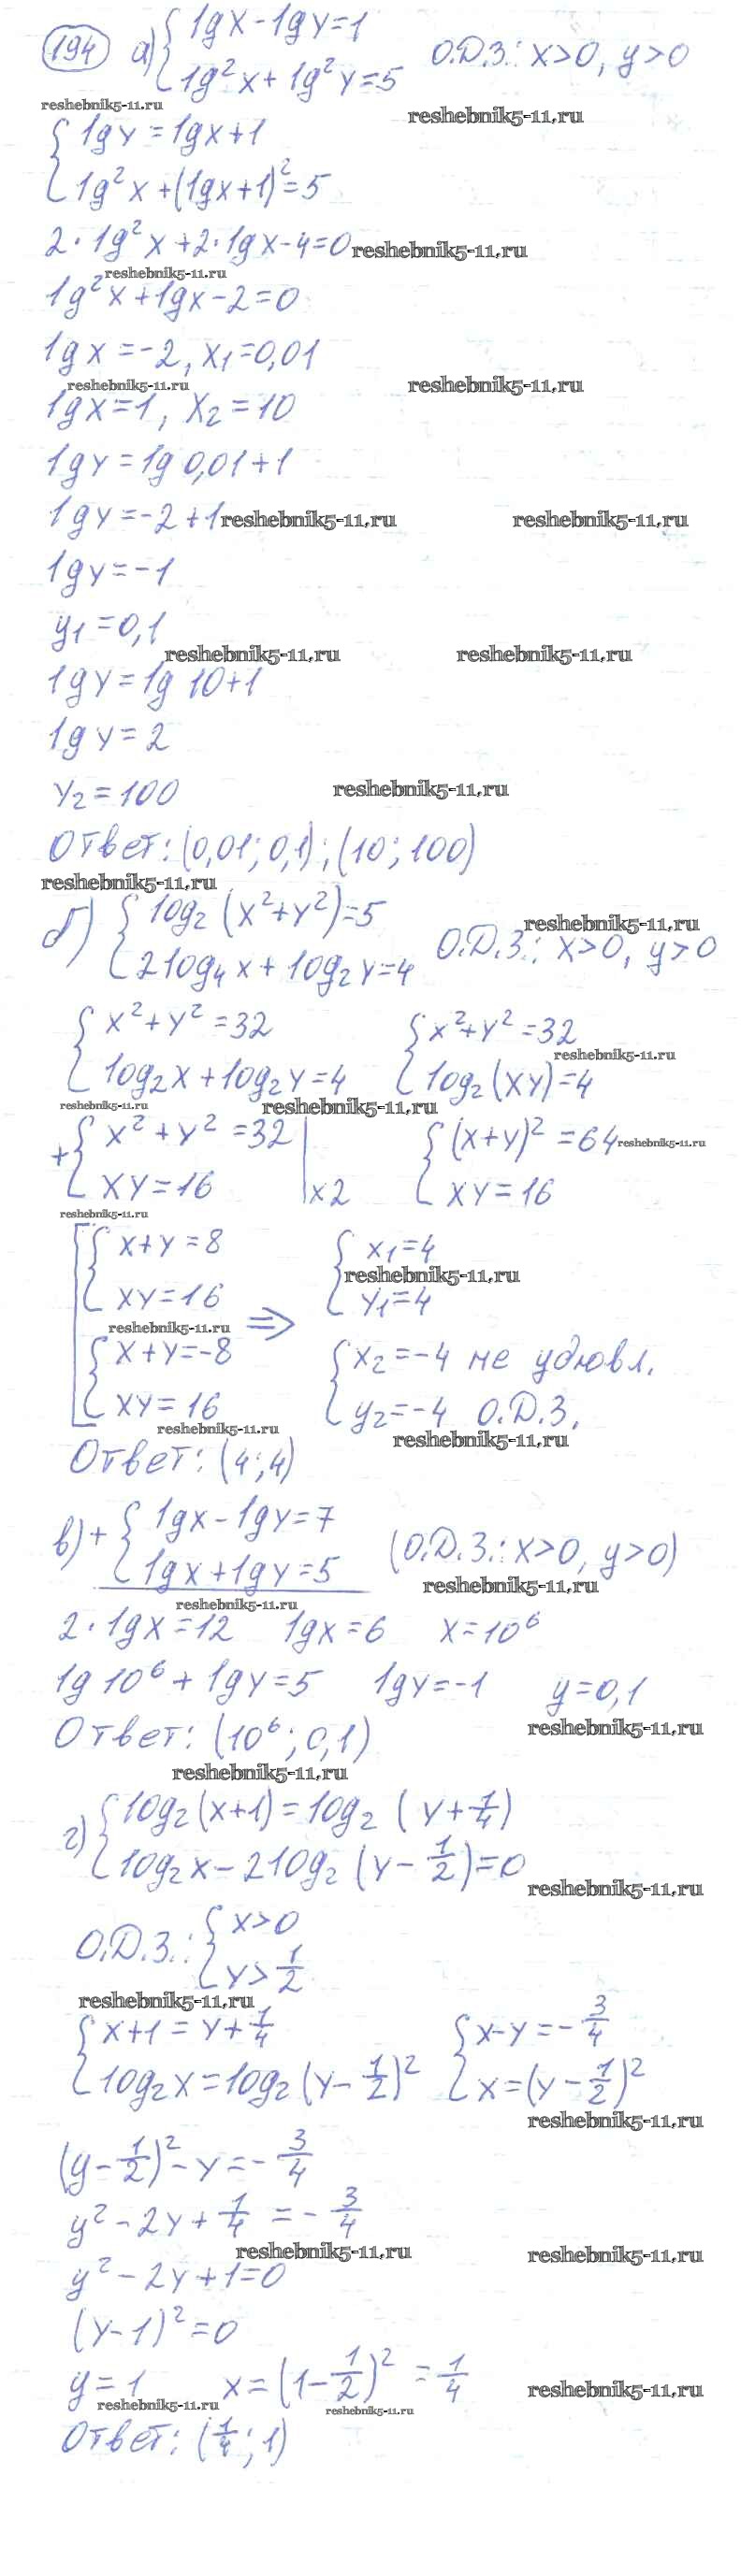 194 а) { lgx - lgy = 1
lg²x + lg²y = 5 О.Д.З.: x>0, y>0
reshebnik5-11.ru
reshebnik5-11.ru
{ lgy = lgx + 1
lg²x + (lgx+1)² = 5
2·lg²x + 2·lgx - 4 = 0 reshebnik5-11.ru
reshebnik5-11.ru
lg²x + lgx - 2 = 0
lgx = -2, x₁ = 0,01
reshebnik5-11.ru reshebnik5-11.ru
lgx = 1, x₂ = 10
lgy = lg 0,01 + 1
lgy = -2 + 1 reshebnik5-11.ru reshebnik5-11.ru
lgy = -1
y₁ = 0,1
reshebnik5-11.ru reshebnik5-11.ru
lgy = lg 10 + 1
lgy = 2
y₂ = 100 reshebnik5-11.ru
Ответ: (0,01; 0,1); (10; 100)
reshebnik5-11.ru
б) { log₂(x²+y²) = 5
2log₄x + log₂y = 4 О.Д.З.: x>0, y>0
reshebnik5-11.ru
{ x² + y² = 32 { x² + y² = 32
reshebnik5-11.ru
log₂x + log₂y = 4 log₂(xy) = 4
reshebnik5-11.ru reshebnik5-11.ru
+ { x² + y² = 32 { (x+y)² = 64 reshebnik5-11.ru
xy = 16 | x2 xy = 16
reshebnik5-11.ru
[ { x+y = 8 { x₁ = 4
reshebnik5-11.ru
xy = 16 y₁ = 4
reshebnik5-11.ru ⇒
{ x+y = -8 { x₂ = -4 не удовл.
xy = 16 y₂ = -4 О.Д.З.
reshebnik5-11.ru reshebnik5-11.ru
Ответ: (4; 4)
в) + { lgx - lgy = 7
lgx + lgy = 5 (О.Д.З.: x>0, y>0)
reshebnik5-11.ru
reshebnik5-11.ru
2·lgx = 12 lgx = 6 x = 10⁶
lg 10⁶ + lgy = 5 lgy = -1 y = 0,1
reshebnik5-11.ru
Ответ: (10⁶; 0,1)
reshebnik5-11.ru
г) { log₂(x+1) = log₂(y + 1/4)
log₂x - 2log₂(y - 1/2) = 0
reshebnik5-11.ru
О.Д.З.: { x>0
y > 1/2
reshebnik5-11.ru
{ x+1 = y + 1/4 { x-y = -3/4
log₂x = log₂(y - 1/2)² x = (y - 1/2)²
reshebnik5-11.ru
(y - 1/2)² - y = -3/4
y² - 2y + 1/4 = -3/4
reshebnik5-11.ru reshebnik5-11.ru
y² - 2y + 1 = 0
(y-1)² = 0
y = 1 x = (1 - 1/2)² = 1/4 reshebnik5-11.ru
reshebnik5-11.ru reshebnik5-11.ru
Ответ: (1/4; 1)